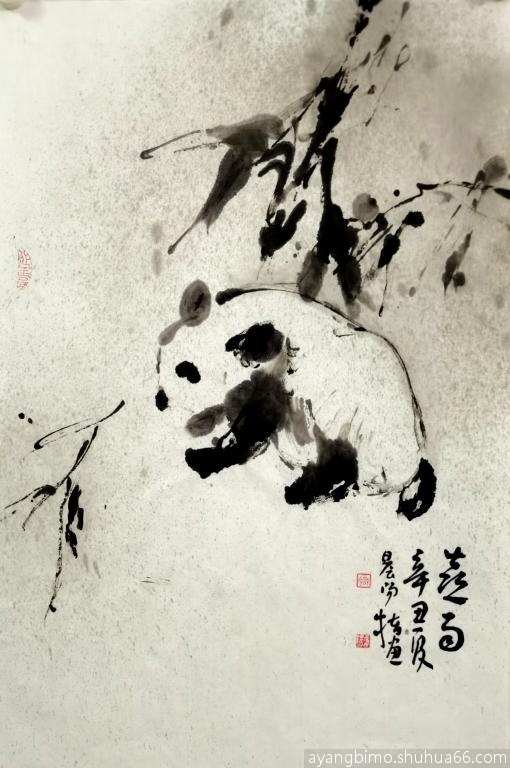 喜雨
辛丑夏
晨阳指画
ayangbimo.shuhua66.com